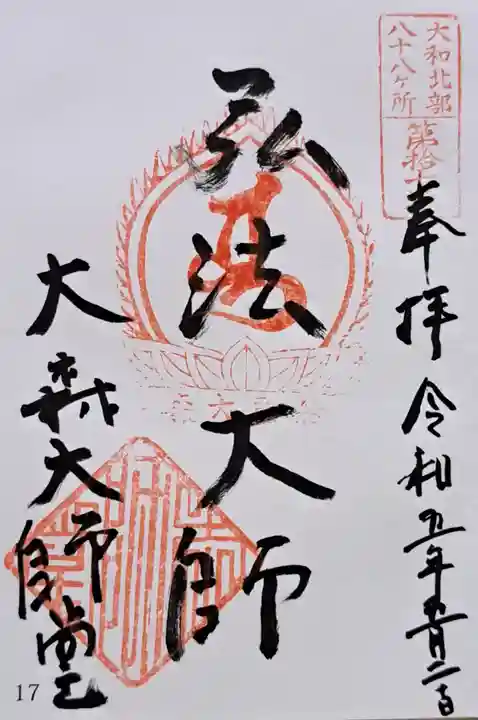 大和北部
八十八ヶ所
第拾
奉拝 令和五年五月二日
弘法大師
大森大師堂
17